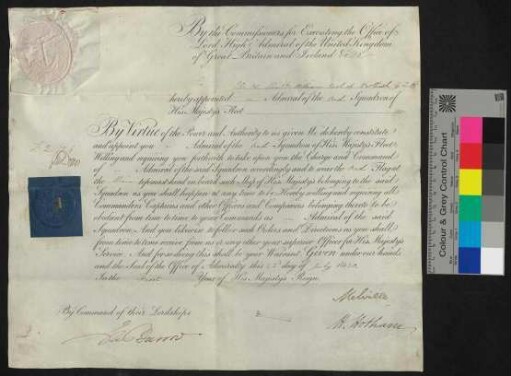 By the Commissioners for Executing the Office of
Lord High Admiral of the United Kingdom
of Great Britain and Ireland &c &c &c
hereby appointed Admiral of the Squadron of
His Majesty's Fleet
By Virtue of the Power and Authority to us given We do hereby constitute
and appoint you Admiral of the Squadron of His Majesty's Fleet
Willing and requiring you forthwith to take upon you the Charge and Command
of Admiral of the said Squadron accordingly and to wear the Flag at
the topmast head on board such Ship of His Majesty's belonging to the said
Squadron as you shall happen at any time to be Strictly willing and requiring all
Commanders Captains and other Officers and Companies belonging thereto to be
obedient from time to time to your Commands as Admiral of the said
Squadron, And you likewise to follow such Orders and Directions as you shall
from time to time receive from us or any other your superior Officer for His Majesty's
Service. And for so doing this shall be your Warrant Given under our hands
and the Seal of the Office of Admiralty this day of July
In the Year of His Majesty's Reign.
Melville
By Command of their Lordships
H. Hotham
J. Barrow
Colour & Grey Control Chart